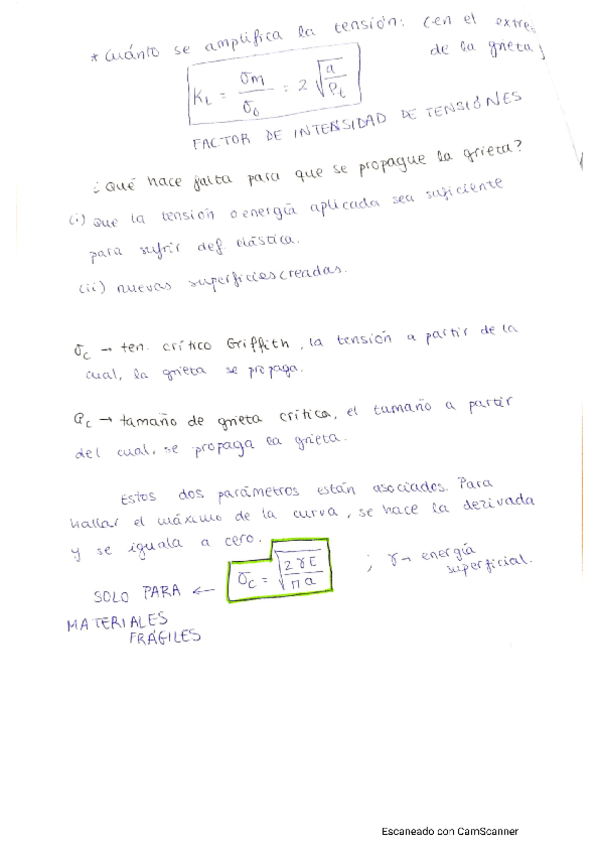 * Cuánto se amplifica la tensión: (en el extre
de la grieta)
Kt = σm/σo = 2 √(a/ρt)
FACTOR DE INTENSIDAD DE TENSIÓNES
¿Qué hace falta para que se propague la grieta?
(i) que la tensión o energía aplicada sea suficiente
para sufrir def. elástica.
(ii) nuevas superficies creadas.
σc → ten. crítico Griffith, la tensión a partir de la
cual, la grieta se propaga.
ac → tamaño de grieta crítica, el tamaño a partir
del cual, se propaga la grieta.
Estos dos parámetros están asociados. Para
hallar el máximo de la curva, se hace la derivada
y se iguala a cero.
SOLO PARA ← σc = √(2γE/πa) ; γ → energía
superficial.
MATERIALES
FRÁGILES
Escaneado con CamScanner